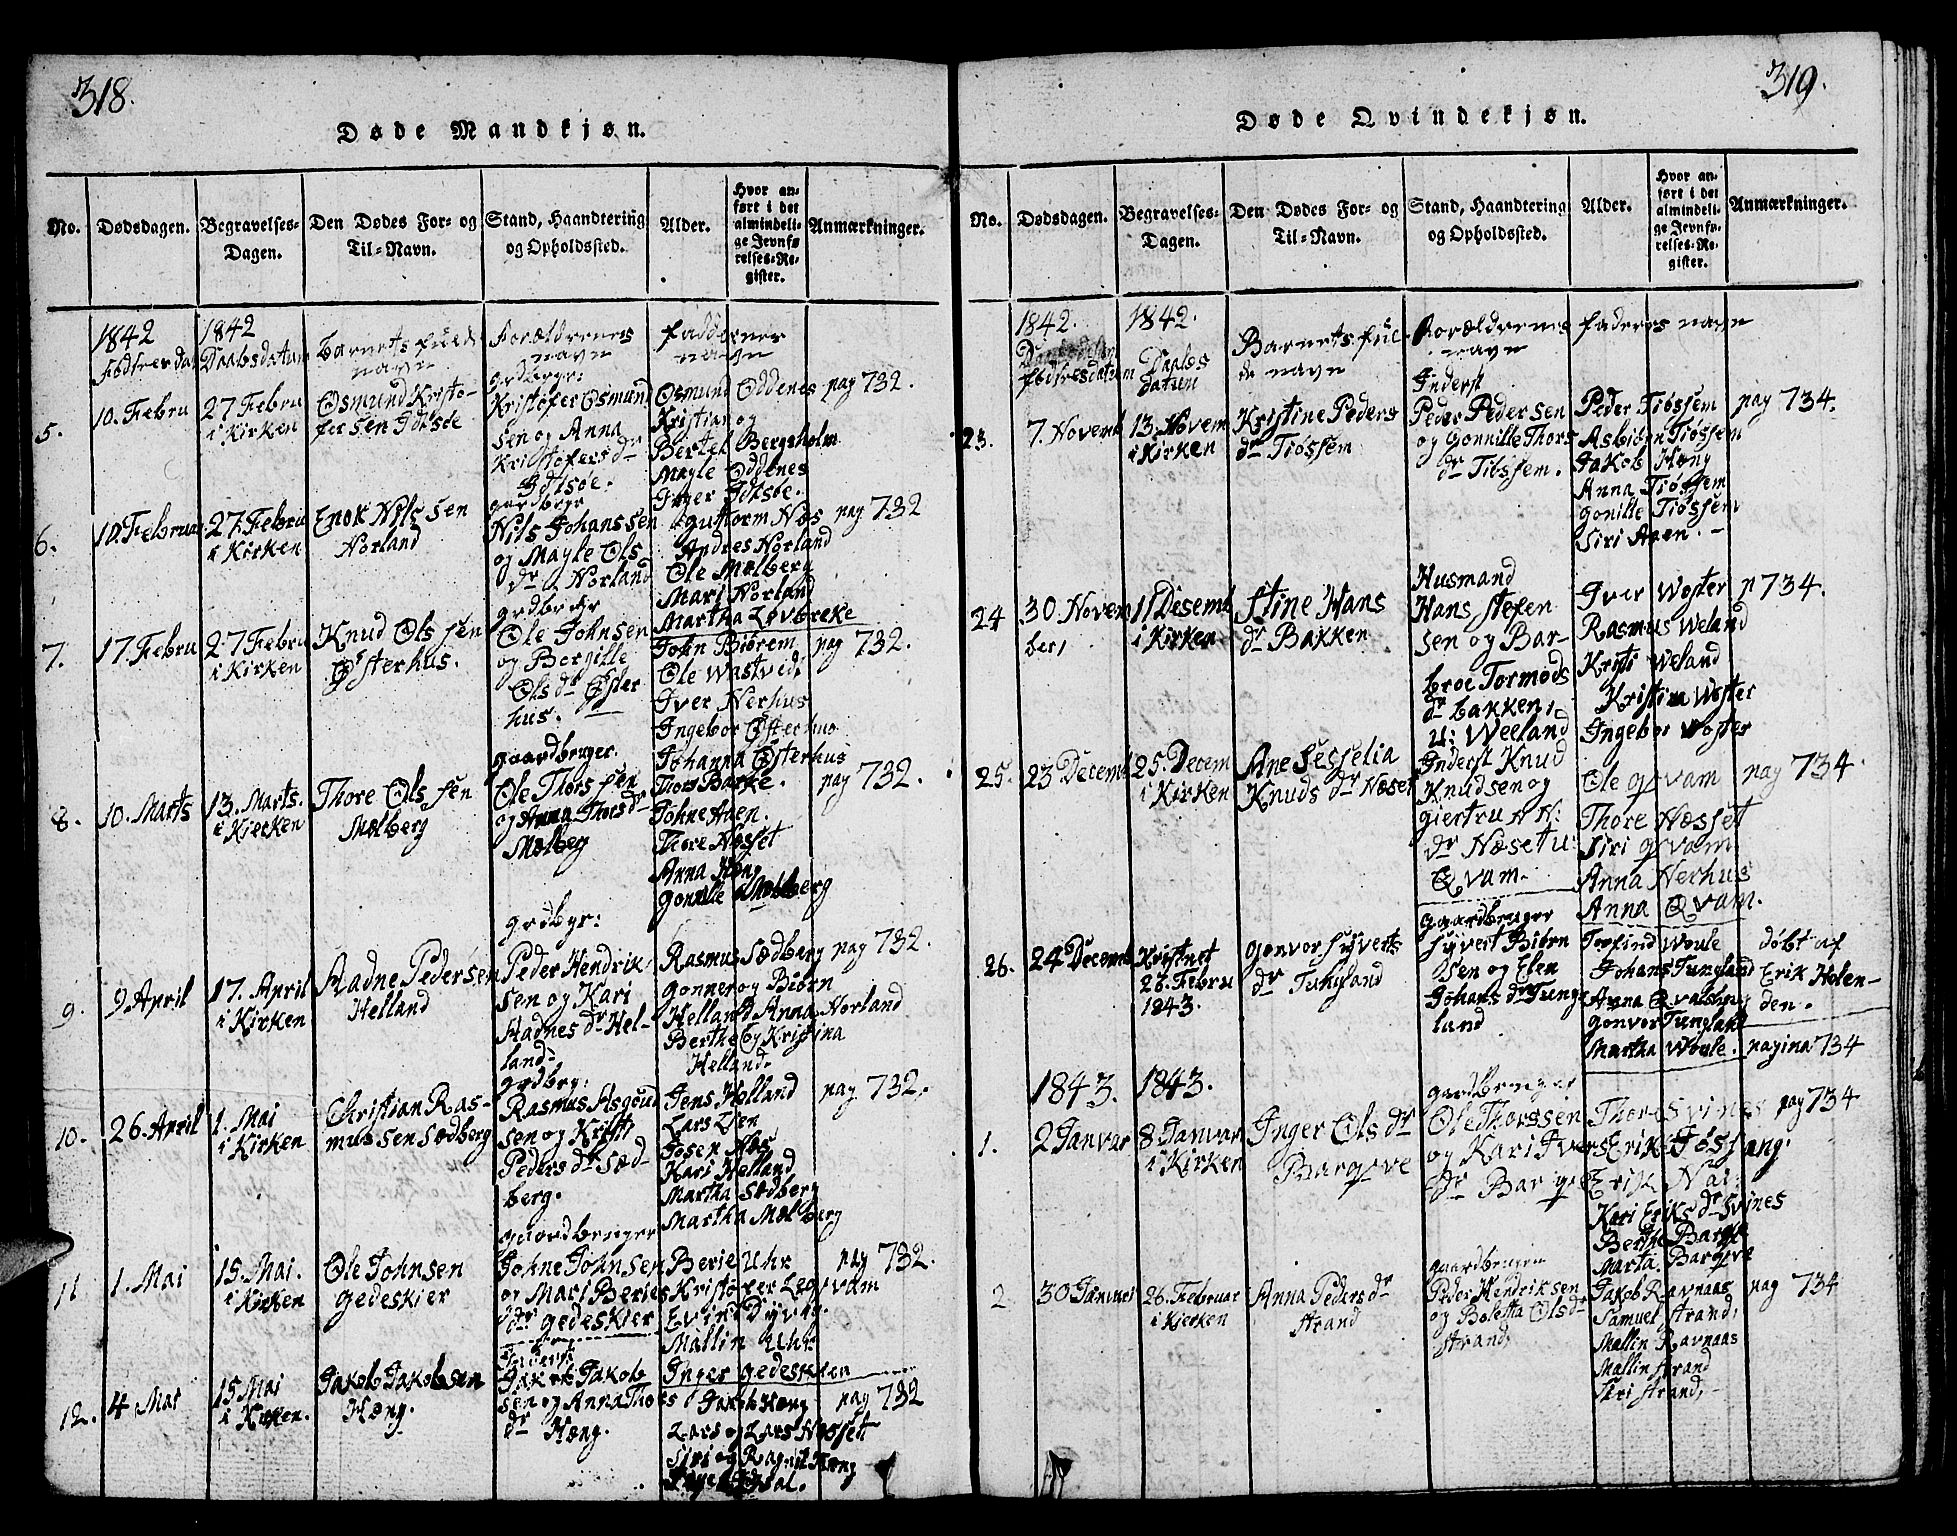 318.
Døde Mandkjøn.
No.
Dødsdagen.
Begravelses-
Dagen.
Den Dødes For- og
Til-Navn.
Stand, Haandtering
og Opholdssted.
Alder.
Hvor an-
ført i det
almindeli-
ge Jevnfø-
relses-Re-
gister.
Anmærkninger.
1842
fødsresdat
1842
Daabsdatum
barnets fulde
navn
Forældrenes
navn
faddernes
navn
5.
10. Febru
27 Febru
i Kirken
Osmund Kristo-
fersen Idtsøe
grdbrgr:
Kristofer Osmund
sen og Anna
Kristofersdr
Idtsøe.
Osmund Oddenes
Kristian og
Bertel Bergsholm
Mayle Oddenes
Inger Idtsøe.
pag 732.
6.
10. Februa
27. Febru
i Kirken
Enok Nilssen
Norland
gardbrgr
Nils Johanssen
og Mayle Ols
dr Norland
guttorm Næs
Andres Norland
Ole Mælberg
Mari Norland
Martha Løvbreke
pag 732
7.
17 Febru
27 Febru
i Kirken
Knud Olssen
Østerhus.
grdbrgr
Ole Johnsen
og Borgille
Olsdr Øster
hus.
John Biørem
Ole Wastvedt
Iver Nerhus
Ingebor Østerhus
Johanna Østerhus
pag 732.
8.
10. Marts
13. Marts.
i Kierken
Thore Olssen
Mælberg
gaardbruger.
Ole Thorssen
og Anna Thorsdr
Mælberg
Thors Barke.
Johne Aaen.
Thore Næsset
Anna Høng
Gonnille Mælberg
pag 732.
9.
9 April
17. April
i Kirken
Aadne Pedersen
Helland
grdbgr:
Peder Hendrik-
sen og Kari
Aadnesdr Hel-
land.
Rasmus Sædberg
Gonner og Biørn
Helland Anna Norland
Berthe og Kristina
Helland.
pag 732.
10.
26. April
1. Mai
i Kirken
Christian Ras-
mussen Sædberg
grdbrg:
Rasmus Asgoud
sen og Kristi
Pedersdr Sæd-
berg.
Jens Helland
Lars Lien
Josen Næs
Kari Helland
Martha Sædberg
Martha Mælberg
pag 732.
11.
1. Mai
15. Mai.
i Kirken
Ole Johnsen
Gedeskier
gaardbruger
Johne Johnsen
og Mari Beries
dr Gedeskier
Berie Uhr
Kristofer Leqvam
Evind Dyvig.
Mallin Uhr
Inger Gedeskien
pag 732.
12.
4 Mai
15 Mai
i Kirken.
Jakob Jakobsen
Høng.
Inderst
Jakob Jakob
sen og Anna Thors
dr Høng.
Jakob Høng
Lars og Lars Næsset
Siri og Ragnil Høng
pag 732
319.
Døde Qvindekjøn.
No.
Dødsdagen.
Begravelses-
Dagen.
Den Dødes For- og
Til-Navn.
Stand, Haandtering
og Opholdssted.
Alder.
Hvor an-
ført i det
almindeli-
ge Jevnfø-
relses-Re-
gister.
Anmærkninger.
1842.
fødsresdatum
1842.
Daabs
datum
Barnets ful-
de navn
Forældrenes
navn
faderes navn
23.
7. Novemb
13. Novem
i Kirken
Kristine Peders
dr Tiøssem
Inderst
Peder Pedersen
og Gonnille Thors
dr Tiøssem.
Peder Tiøssem
Asbiørn Tiøssem
Jakob Høng
Anna Tiøssem
Gonille Tiøssem
Siri Aaen. –
pag 734.
24
30. Novem
ber,
11 Desemb
i Kirken
Stine Hans
dr Bakken
Husmand
Hans Stefen
sen og Bar-
broe Tormods
dr bakken,
u: Weeland
Iver Woster
Rasmus Weland
Kristi Weland
Kristina Woster
Ingebor Woster
p 734.
25.
23 Decemb
25. Decem
i Kirken
Ane Sesselia
Knudsdr Næset
Inderst Knud
Knudsen og
giertru NN:
dr Næset u:
Qvam.
Ole qvam
Thore Næsset
Siri qvam
Anna Nerhus
Anna Qvam.
pag 734.
26.
24 Decemb
Kristnet
26. Febru
1843.
Gonvor Syverts
dr Tungland
Gaardbruger
Syvert Biørn
sen og Elen
Johansdr Tung-
land
Torfind Woule
Johans Tungland
Anna Qvalshug
Gonvor Tungland
Martha Woule.
døbt af
Erik Holen-
den.
pagina 734
1843.
1843.
1.
2 Janvar
8. Janvar
i Kirken
Inger Olsdr
Barqve
gaardbruger
Ole Thorssen
og Kari Ivers
dr Barqve
Thore Svines
Erik Jøssang.
Erik Næs
Kari Eriksdr Svines
Berthe Barqve
Marta Barqve
pag 734
2
30 Januar
26. Februar
i Kierken
Anna Pedersdr
Strand
gaardbruger
Peder Hendriksen
og Boletta Olsdr
Strand,
Jakob Ravnaas
Samuel Strand,
Mallin Ravnaas
Mallin Strand
Siri Strand, –
pag 734